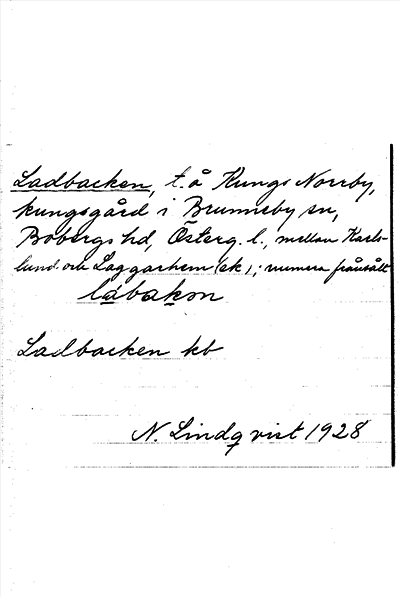 Ladbacken, t. å Kungs Norrby,
kungsgård i Brunneby sn,
Bobergs hd, Österg. l., mellan Karls-
lund och Laggarhem (ek); numera frånsålt
làbákɘn
Ladbacken kb
N. Lindqvist 1928